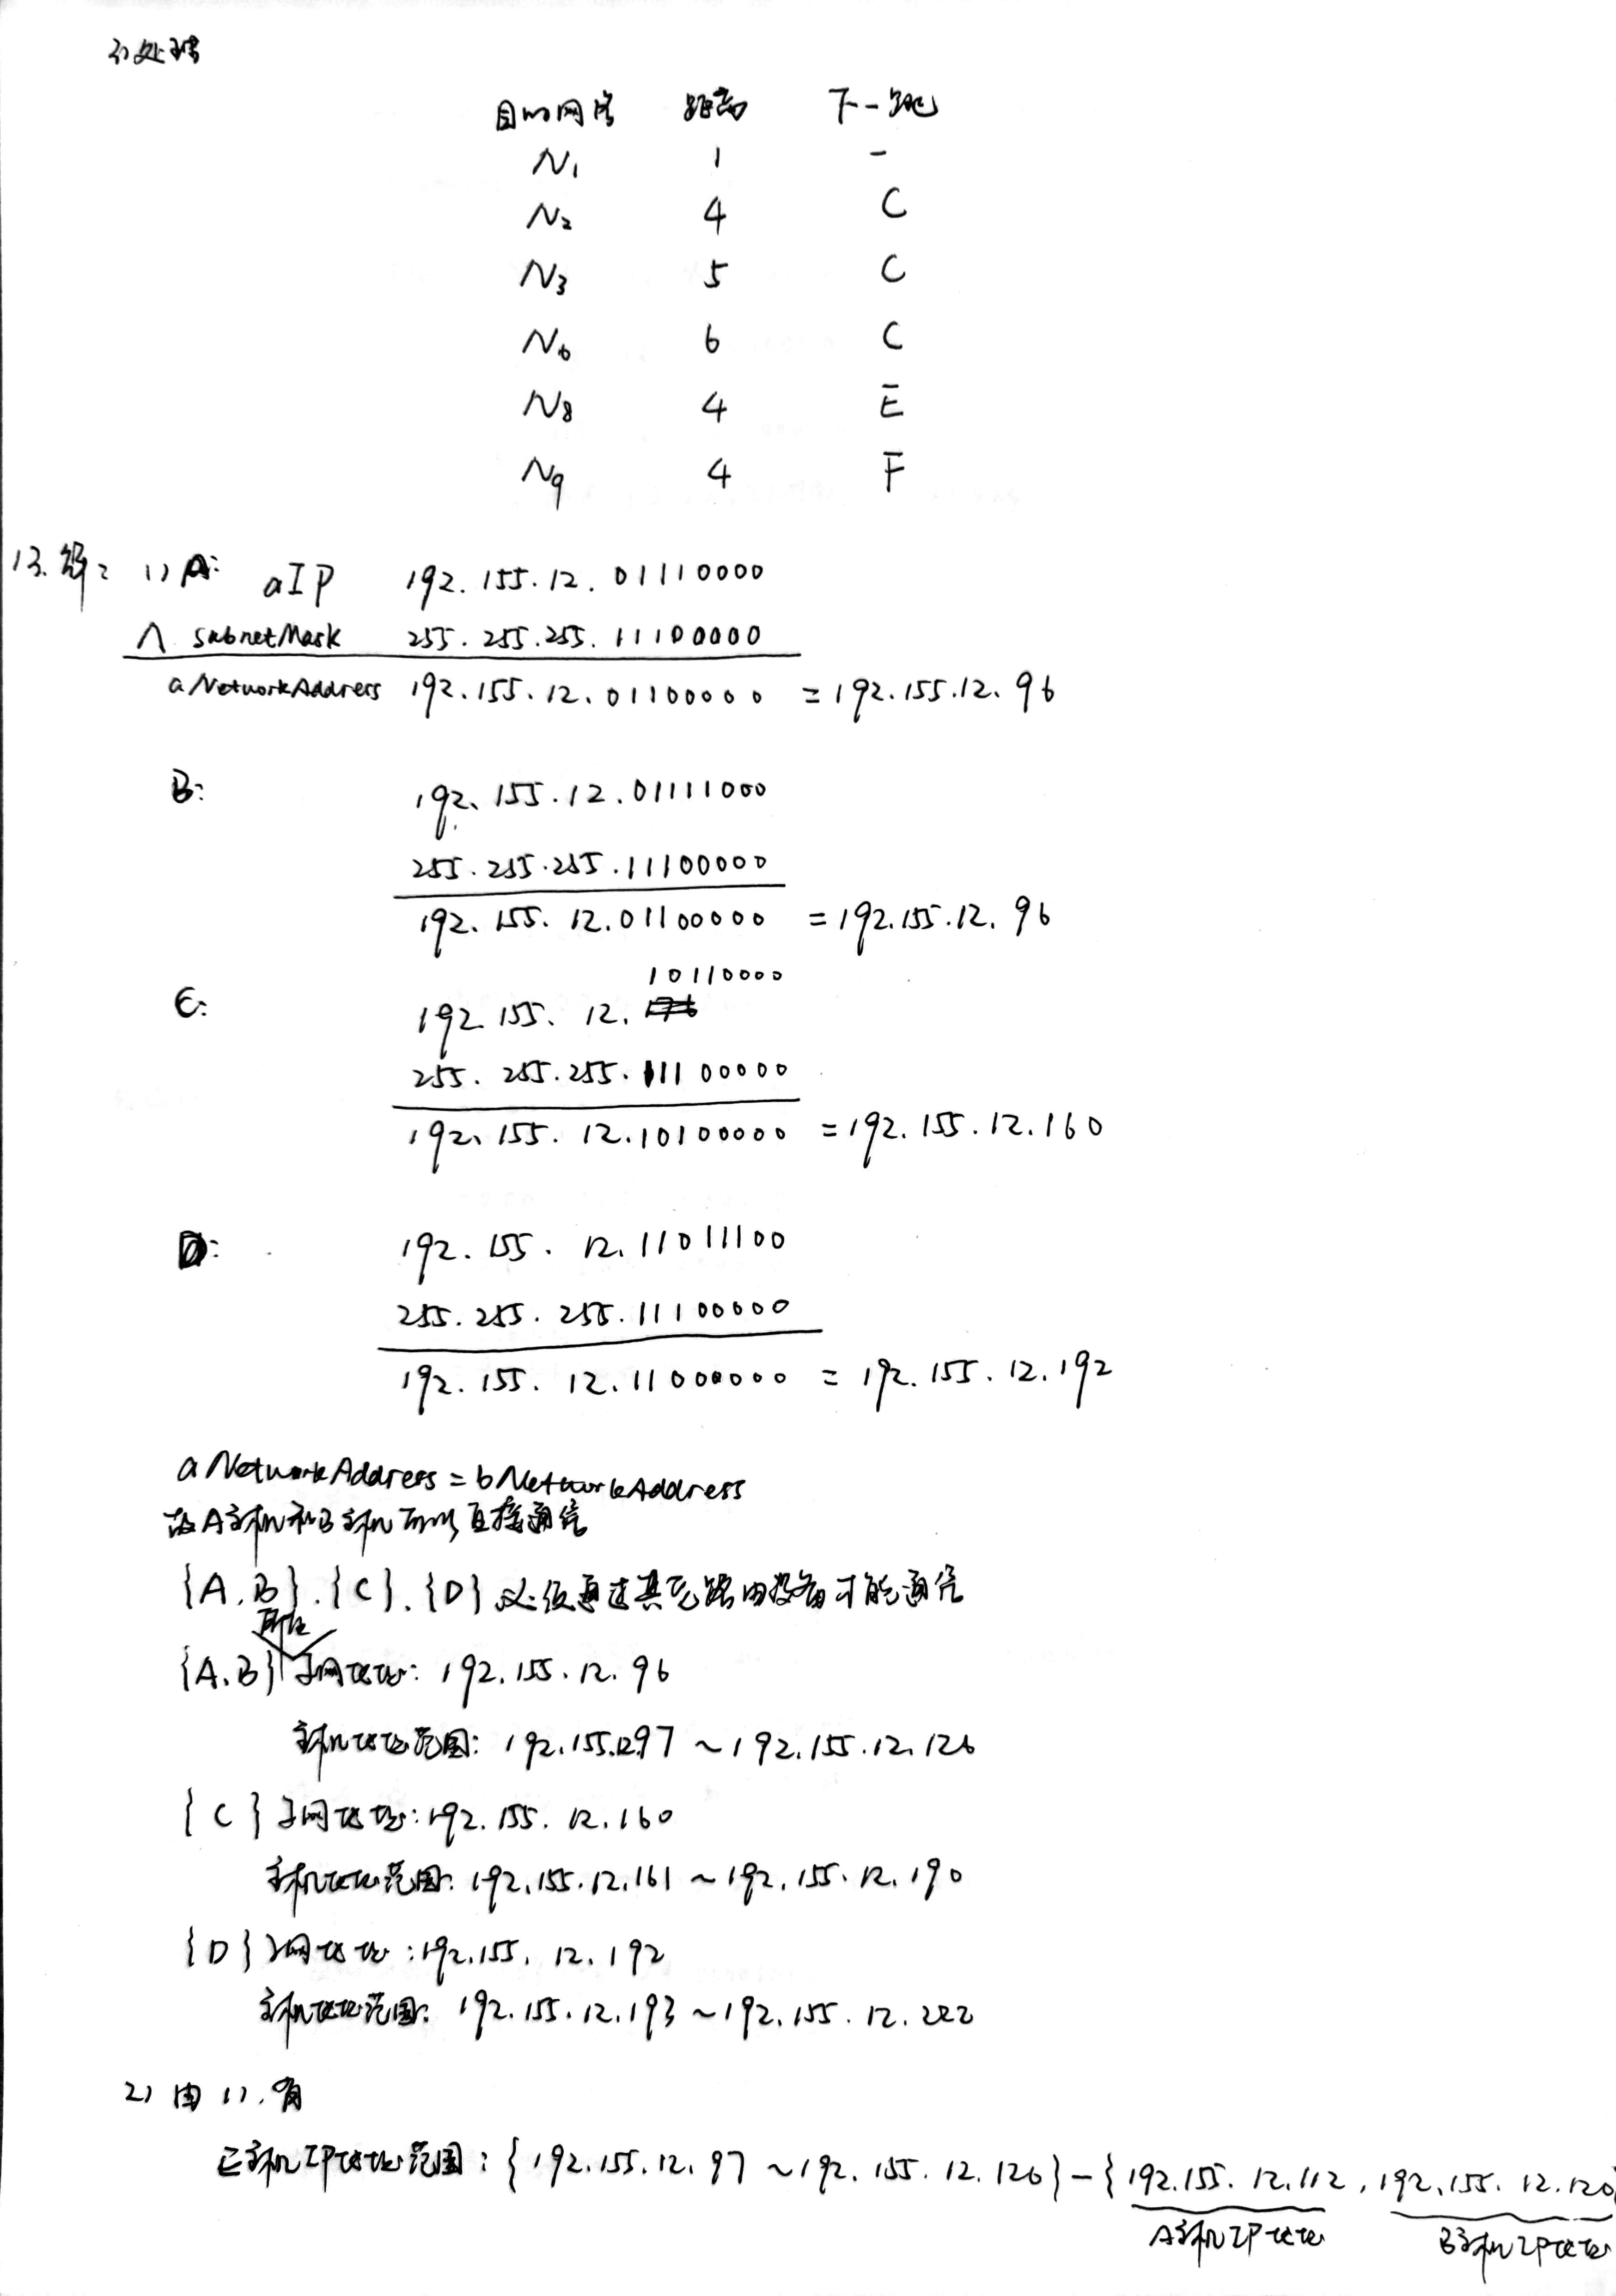 3) 处理
目的网络 距离 下一跳
N₁ 1 -
N₂ 4 C
N₃ 5 C
N₆ 6 C
N₈ 4 E
N₉ 4 F
13. 解: 1) A: aIP 192.155.12.01110000
∧ subnetMask 255.255.255.11100000
aNetworkAddress 192.155.12.01100000 = 192.155.12.96
B: 192.155.12.01111000
255.255.255.11100000
192.155.12.01100000 = 192.155.12.96
10110000
C: 192.155.12.
255.255.255.11100000
192.155.12.10100000 = 192.155.12.160
D: 192.155.12.11011100
255.255.255.11100000
192.155.12.11000000 = 192.155.12.192
aNetworkAddress = bNetworkAddress
故A主机和B主机可以直接通信
{A.B}.{C}.{D} 必须通过其它路由设备才能通信
所在
{A.B} 子网地址: 192.155.12.96
主机地址范围: 192.155.12.97 ~ 192.155.12.126
{C} 子网地址: 192.155.12.160
主机地址范围: 192.155.12.161 ~ 192.155.12.190
{D} 子网地址: 192.155.12.192
主机地址范围: 192.155.12.193 ~ 192.155.12.222
2) 由 1). 有
E主机IP地址范围: {192.155.12.97 ~ 192.155.12.126} - {192.155.12.112, 192.155.12.120}
A主机IP地址 B主机IP地址